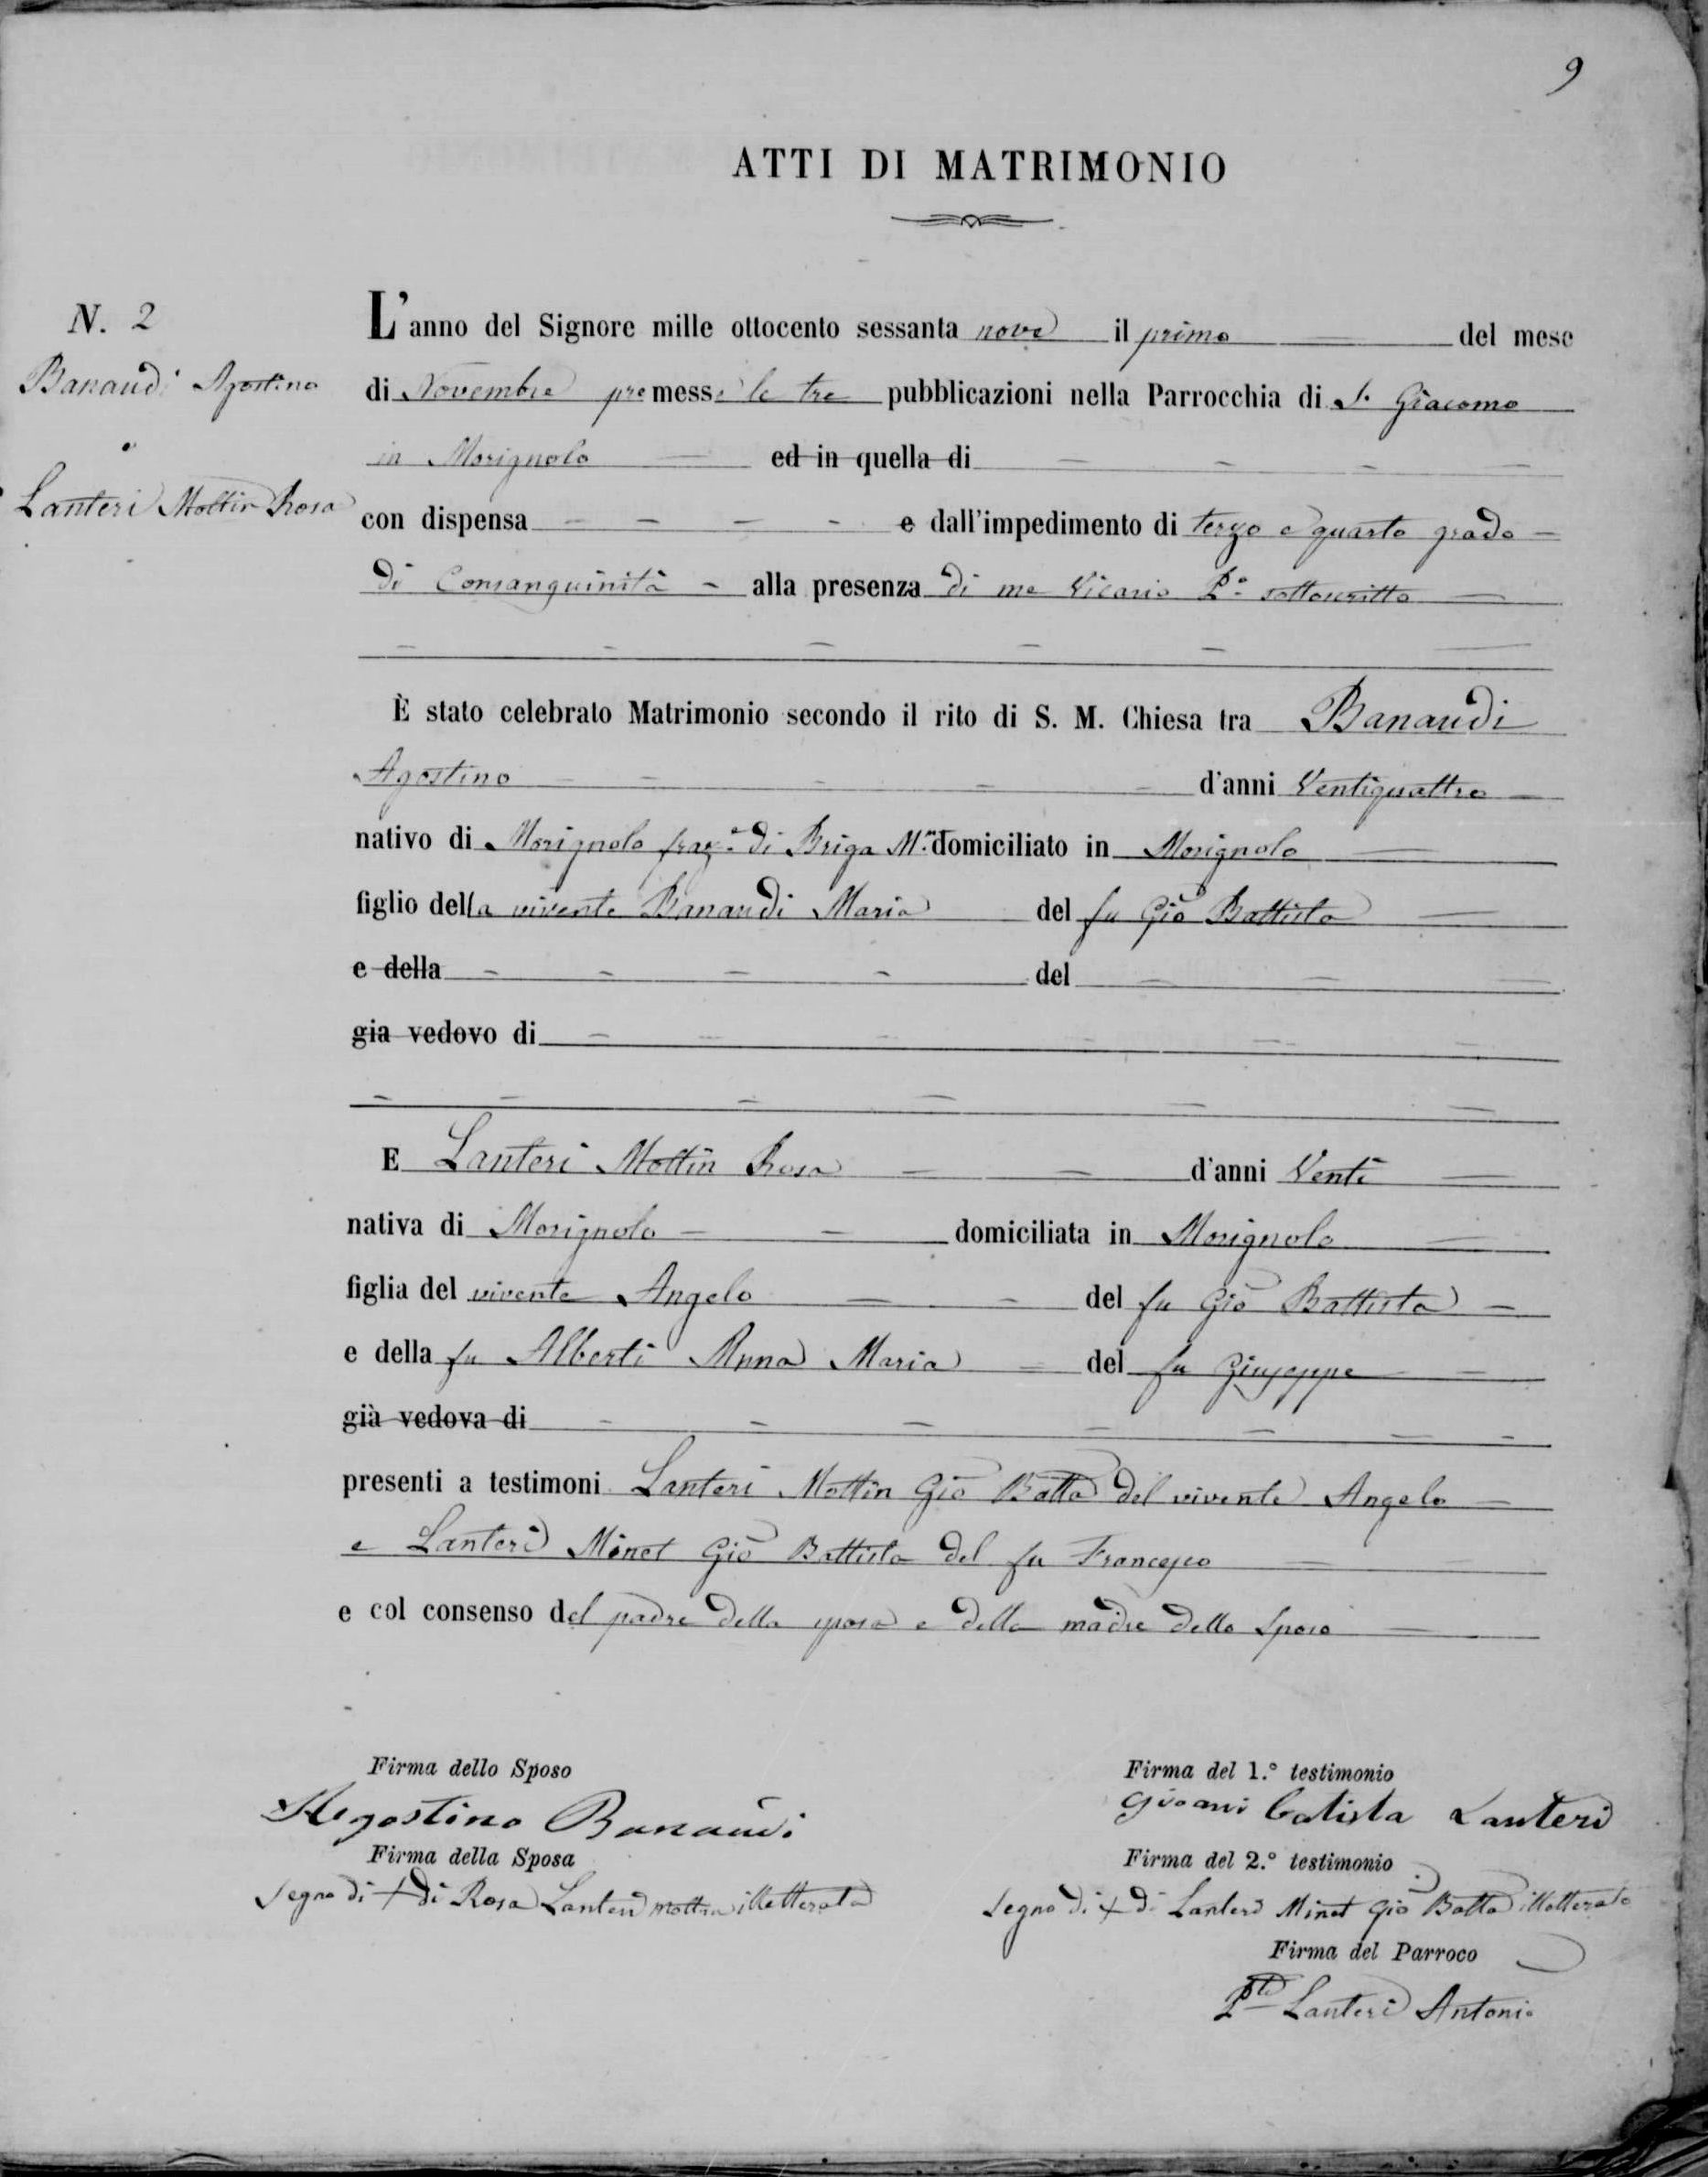 9
ATTI DI MATRIMONIO
N. 2
Banaudi Agostino
e
Lanteri Mottin Rosa
L'anno del Signore mille ottocento sessanta nove il primo del mese
di Novembre premesse le tre pubblicazioni nella Parrocchia di S. Giacomo
in Morignolo ed in quella di
con dispensa e dall'impedimento di terzo e quarto grado
di Consanguinità alla presenza di me Vicario P.º sottoscritto
È stato celebrato Matrimonio secondo il rito di S. M. Chiesa tra Banaudi
Agostino d'anni Ventiquattro
nativo di Morignolo fraz.e di Briga M.ma domiciliato in Morignolo
figlio della vivente Banaudi Maria del fu Gio Battista
e della del
gia vedovo di
E Lanteri Mottin Rosa d'anni Venti
nativa di Morignolo domiciliata in Morignolo
figlia del vivente Angelo del fu Gio Battista
e della fu Alberti Anna Maria del fu Giuseppe
già vedova di
presenti a testimoni Lanteri Mottin Gio Batta del vivente Angelo
e Lanteri Minet Gio Battista del fu Francesco
e col consenso del padre della sposa e della madre dello Sposo
Firma dello Sposo
Agostino Banaudi
Firma della Sposa
Segno di + di Rosa Lanteri Mottin illetterata
Firma del 1.º testimonio
Gioani Batista Lanteri
Firma del 2.º testimonio
Segno di + di Lanteri Minet Gio Batta illetterato
Firma del Parroco
Pte Lanteri Antonio